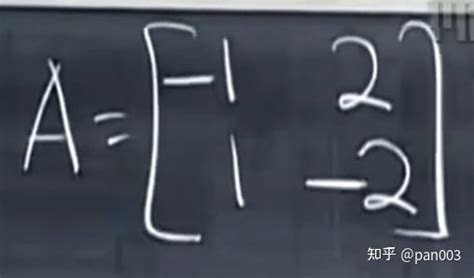 A = [ -1 2
1 -2 ]
知乎 @pan003